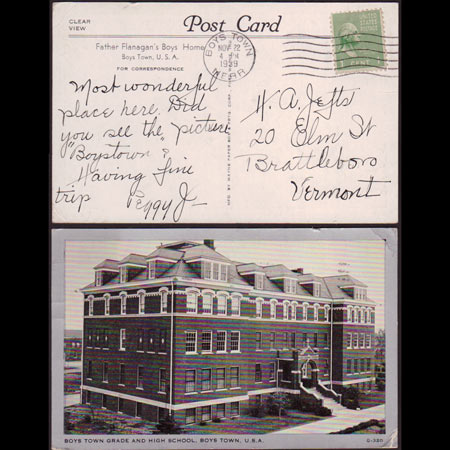 CLEAR
VIEW
Post Card
Father Flanagan's Boys' Home
Boys Town, U.S.A.
FOR CORRESPONDENCE
BOYS TOWN
NOV 22
4 PM
1939
NEBR.
UNITED STATES
1 CENT
Most wonderful
place here. Did
you see the picture
"Boystown &
Having fine
trip
Peggy J—
H. A. Jefts
20 Elm St
Brattleboro
Vermont
BOYS TOWN GRADE AND HIGH SCHOOL, BOYS TOWN, U.S.A.